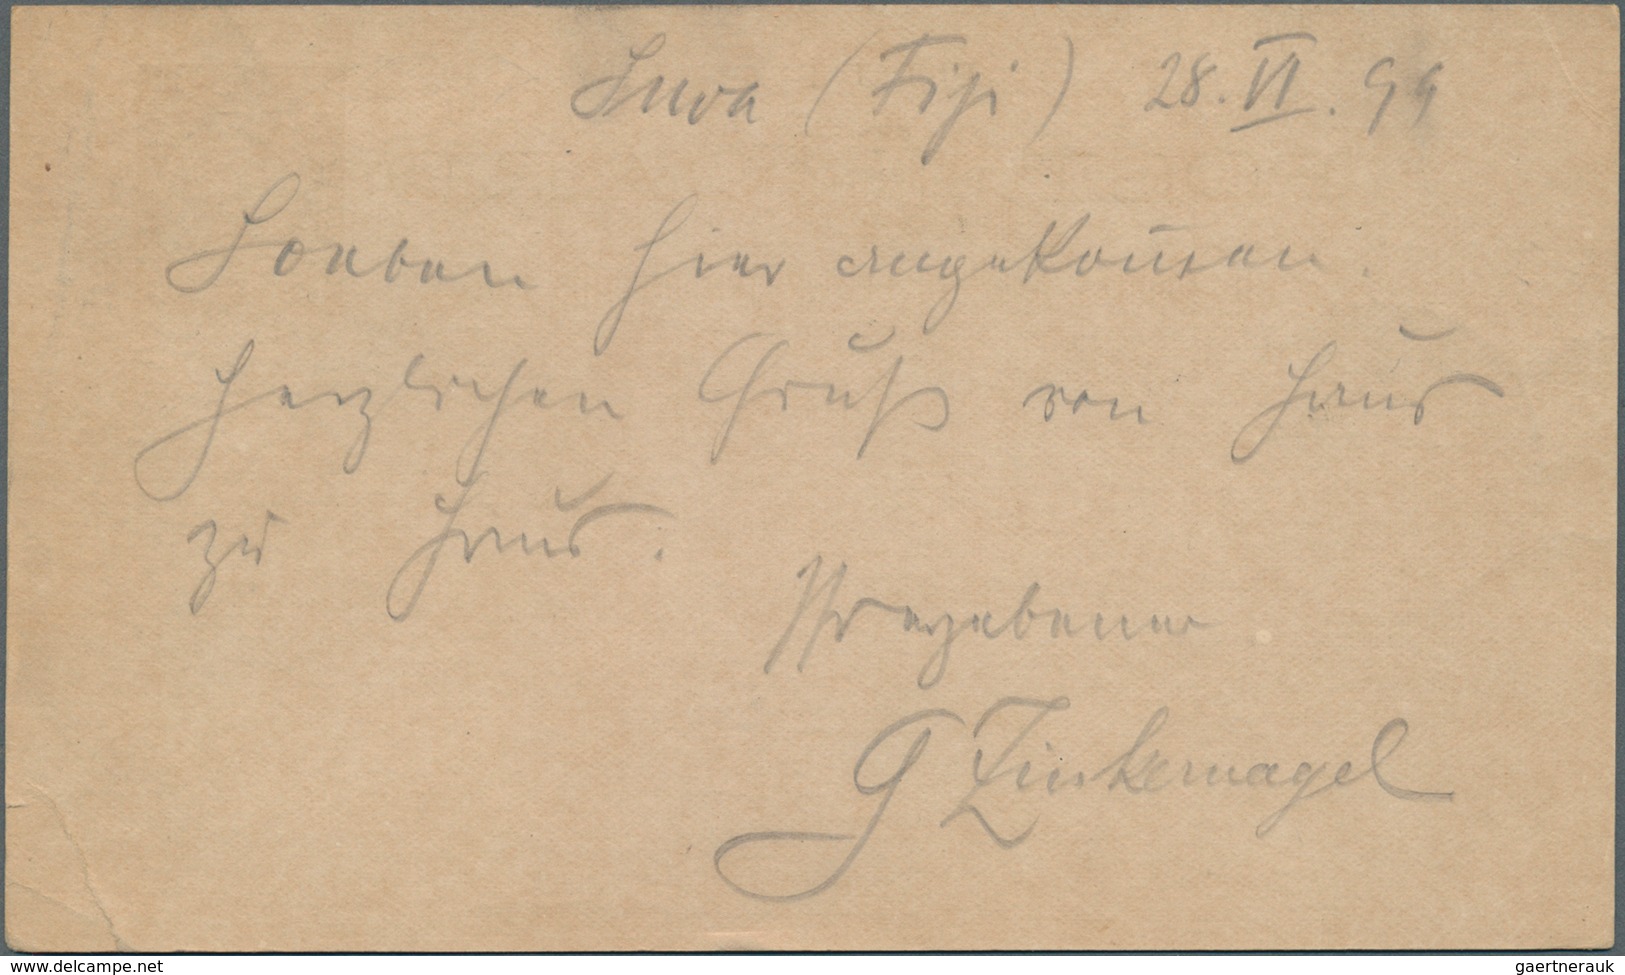 Suva (Fiji) 28. VI. 99
Soeben hier angekom̅en.
Herzlichen Gruß von Haus
zu Haus.
Ihr ergebener
G Zinkernagel
www.delcampe.net
gaertnerauk